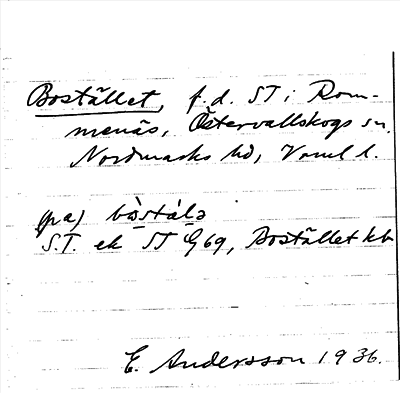 Bostället, f.d. ST i Rom-
menäs, Östervallskogs sn,
Nordmarks hd, Värml l.
(pa) bòstálə
S.T. ek ST G 69, Bostället kb
E. Andersson 1936.